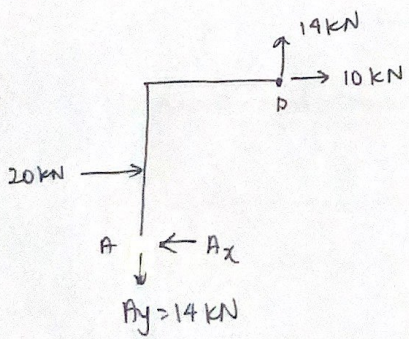 14kN
10kN
D
20kN
A
Ax
Ay=14kN